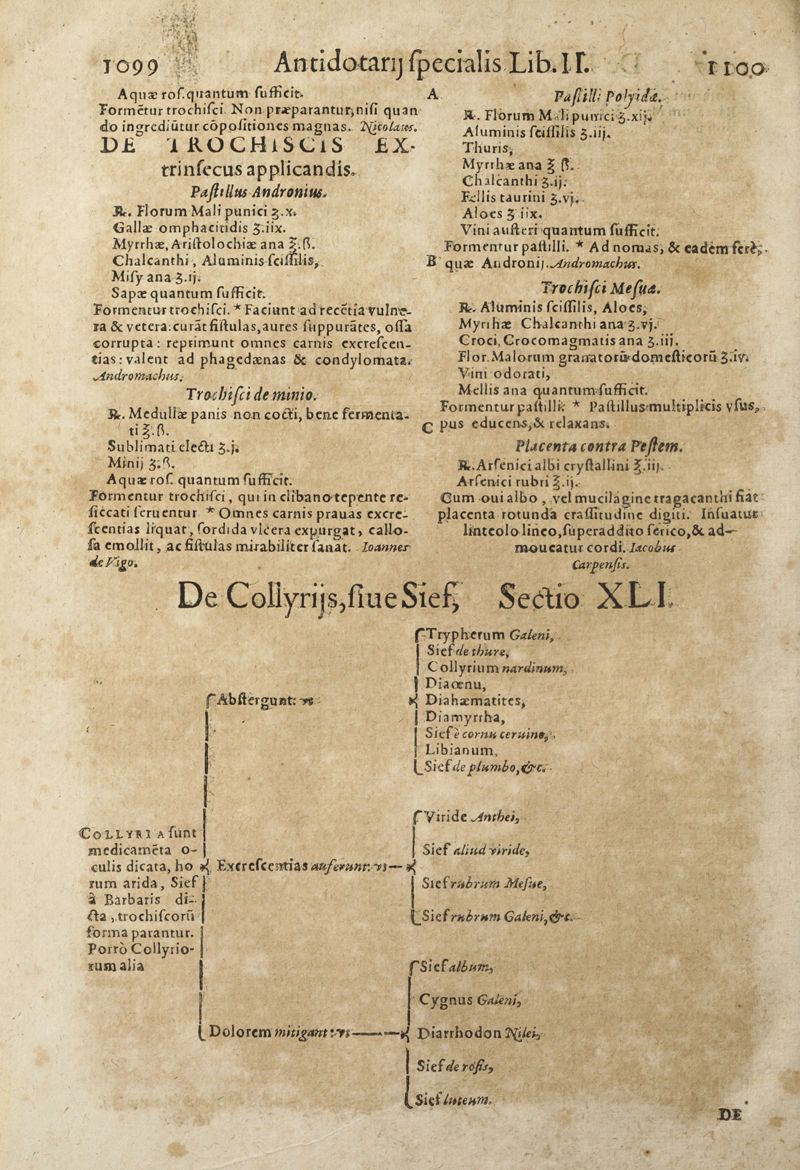 1099
Antidotarij ſpecialis Lib. II.
1100
Aquæ roſ. quantum ſufficit.
Formētur trochiſci. Non præparantur, niſi quan
do ingrediūtur cōpoſitiones magnas. Nicolaus.
DE TROCHISCIS EX-
trinſecus applicandis.
Paſtillus Andronius.
℞. Florum Mali punici ʒ.x.
Gallæ omphacitidis ʒ.iix.
Myrrhæ, Ariſtolochiæ ana ℥.ß.
Chalcanthi, Aluminis ſciſſilis,
Miſy ana ʒ.ij.
Sapæ quantum ſufficit.
Formentur trochiſci. * Faciunt ad recētia vulne-
ra & vetera: curāt fiſtulas, aures ſuppurātes, oſſa
corrupta: reprimunt omnes carnis excreſcen-
tias: valent ad phagedænas & condylomata.
Andromachus.
Trochiſci de minio.
℞. Medullæ panis non cocti, bene fermenta-
ti ℥.ß.
Sublimati electi ʒ.j.
Minij ʒ.ß.
Aquæ roſ. quantum ſufficit.
Formentur trochiſci, qui in clibano tepente re-
ſiccati ſeruentur * Omnes carnis prauas excre-
ſcentias liquat, ſordida vlcera expurgat, callo-
ſa emollit, ac fiſtulas mirabiliter ſanat. Ioannes
de Vigo.
A
Paſtilli Polyidæ.
℞. Florum Mali punici ʒ.xij.
Aluminis ſciſſilis ʒ.iij.
Thuris,
Myrrhæ ana ℥ ß.
Chalcanthi ʒ.ij.
Fellis taurini ʒ.vj.
Aloes ʒ iix.
Vini auſteri quantum ſufficit.
Formentur paſtilli. * Ad nomas, & eadēm ferè,
B quæ Andronij. Andromachus.
Trochiſci Meſuæ.
℞. Aluminis ſciſſilis, Aloes,
Myrrhæ Chalcanthi ana ʒ.vj.
Croci, Crocomagmatis ana ʒ.iij.
Flor. Malorum granatorū domeſticorū ʒ.iv.
Vini odorati,
Mellis ana quantum ſufficit.
Formentur paſtilli. * Paſtillus multiplicis vſus,
C pus educens, & relaxans.
Placenta contra Peſtem.
℞. Arſenici albi cryſtallini ℥.iij.
Arſenici rubri ℥.ij.
Cum oui albo, vel mucilagine tragacanthi fiat
placenta rotunda craſſitudine digiti. Inſuatur
linteolo lineo, ſuperaddito ſerico, & ad-
moueatur cordi. Iacobus
Carpenſis.
De Collyrijs, ſiue Sief, Sectio XLI.
Trypherum Galeni,
Sief de thure,
Collyrium nardinum,
Diaœnu,
Abſtergunt: vt
Diahæmatites,
Diamyrrha,
Sief è cornu ceruino,
Libianum,
Sief de plumbo, &c.
COLLYRIA ſunt
medicamēta o-
culis dicata, ho
rum arida, Sief
à Barbaris di-
cta, trochiſcorū
forma parantur.
Porrò Collyrio-
rum alia
Viride Anthei,
Sief aliud viride,
Excreſcentias auferunt: vt
Sief rubrum Meſue,
Sief rubrum Galeni, &c.
Sief album,
Cygnus Galeni,
Dolorem mitigant: vt
Diarrhodon Nilei,
Sief de roſis,
Sief luteum.
DE